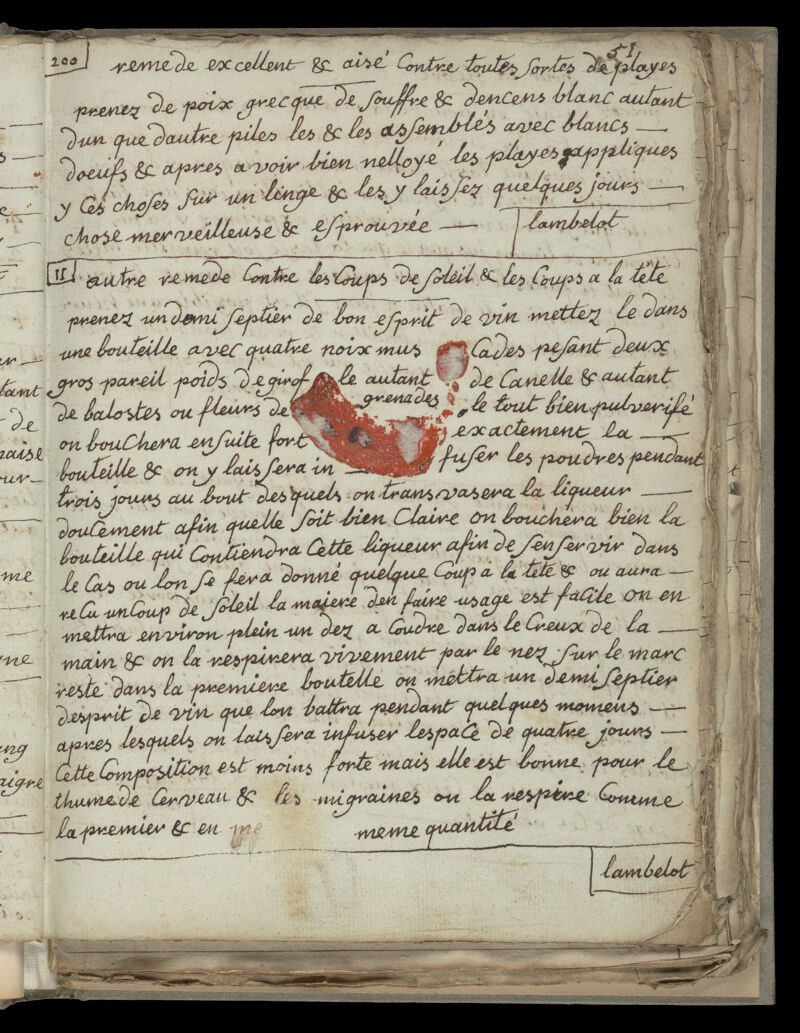 51
200 remede excellent & aisé Contre toutes sortes de playes
prenez de poix grecque de souffre & dencens blanc autant
dun que dautre piles les & les assemblés avec blancs
doeufs & apres avoir bien nettoyé les playes appliques
y Ces choses sur un linge & les y laissez quelques jours
chose merveilleuse & esprouvée — lambelot
II autre remede Contre les Coups de soleil & les Coups a la tête
prenez un demi septier de bon esprit de vin mettez le dans
une bouteille avec quatre noix mus Cades pesant deux
gros pareil poids de girof le autant de Canelle & autant
de balostes ou fleurs de grenades le tout bien pulverisé
on bouchera ensuite fort exactement la
bouteille & on y laissera in — fuser les poudres pendant
trois jours au bout desquels on transvasera la liqueur
doucement afin quelle soit bien Claire on bouchera bien la
bouteille qui Contiendra Cette liqueur afin de sen servir dans
le Cas ou lon se fera donné quelque Coup a la tete & ou aura
recu un Coup de soleil la maiere den faire usage est facile on en
mettra environ plein un dez a Coudre dans le Creux de la
main & on la respirera vivement par le nez sur le marc
reste dans la premiere boutelle on mettra un demi septier
desprit de vin que lon battra pendant quelques momens
apres lesquels on laissera infuser lespace de quatre jours
Cette Composition est moins forte mais elle est bonne pour le
rhume de Cerveau & les migraines on la respire Comme
la premier & en me meme quantité
lambelot